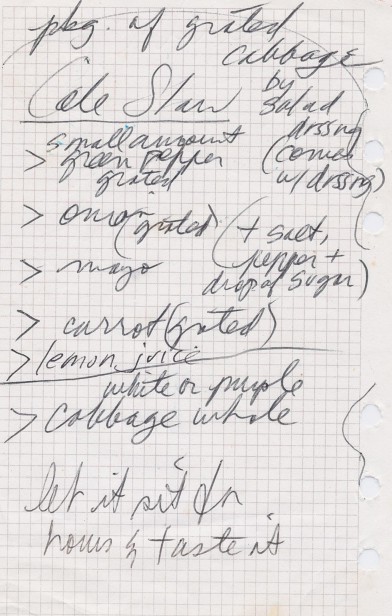 pkg. of grated
cabbage
by
salad
drssng
(comes
w/ drssng)
Cole Slaw
small amount
> green pepper
grated
> onion (grated)
(+ salt,
pepper +
drop of sugar)
> mayo
> carrot (grated)
> lemon juice
white or purple
> cabbage whole
let it sit for
hours & taste it